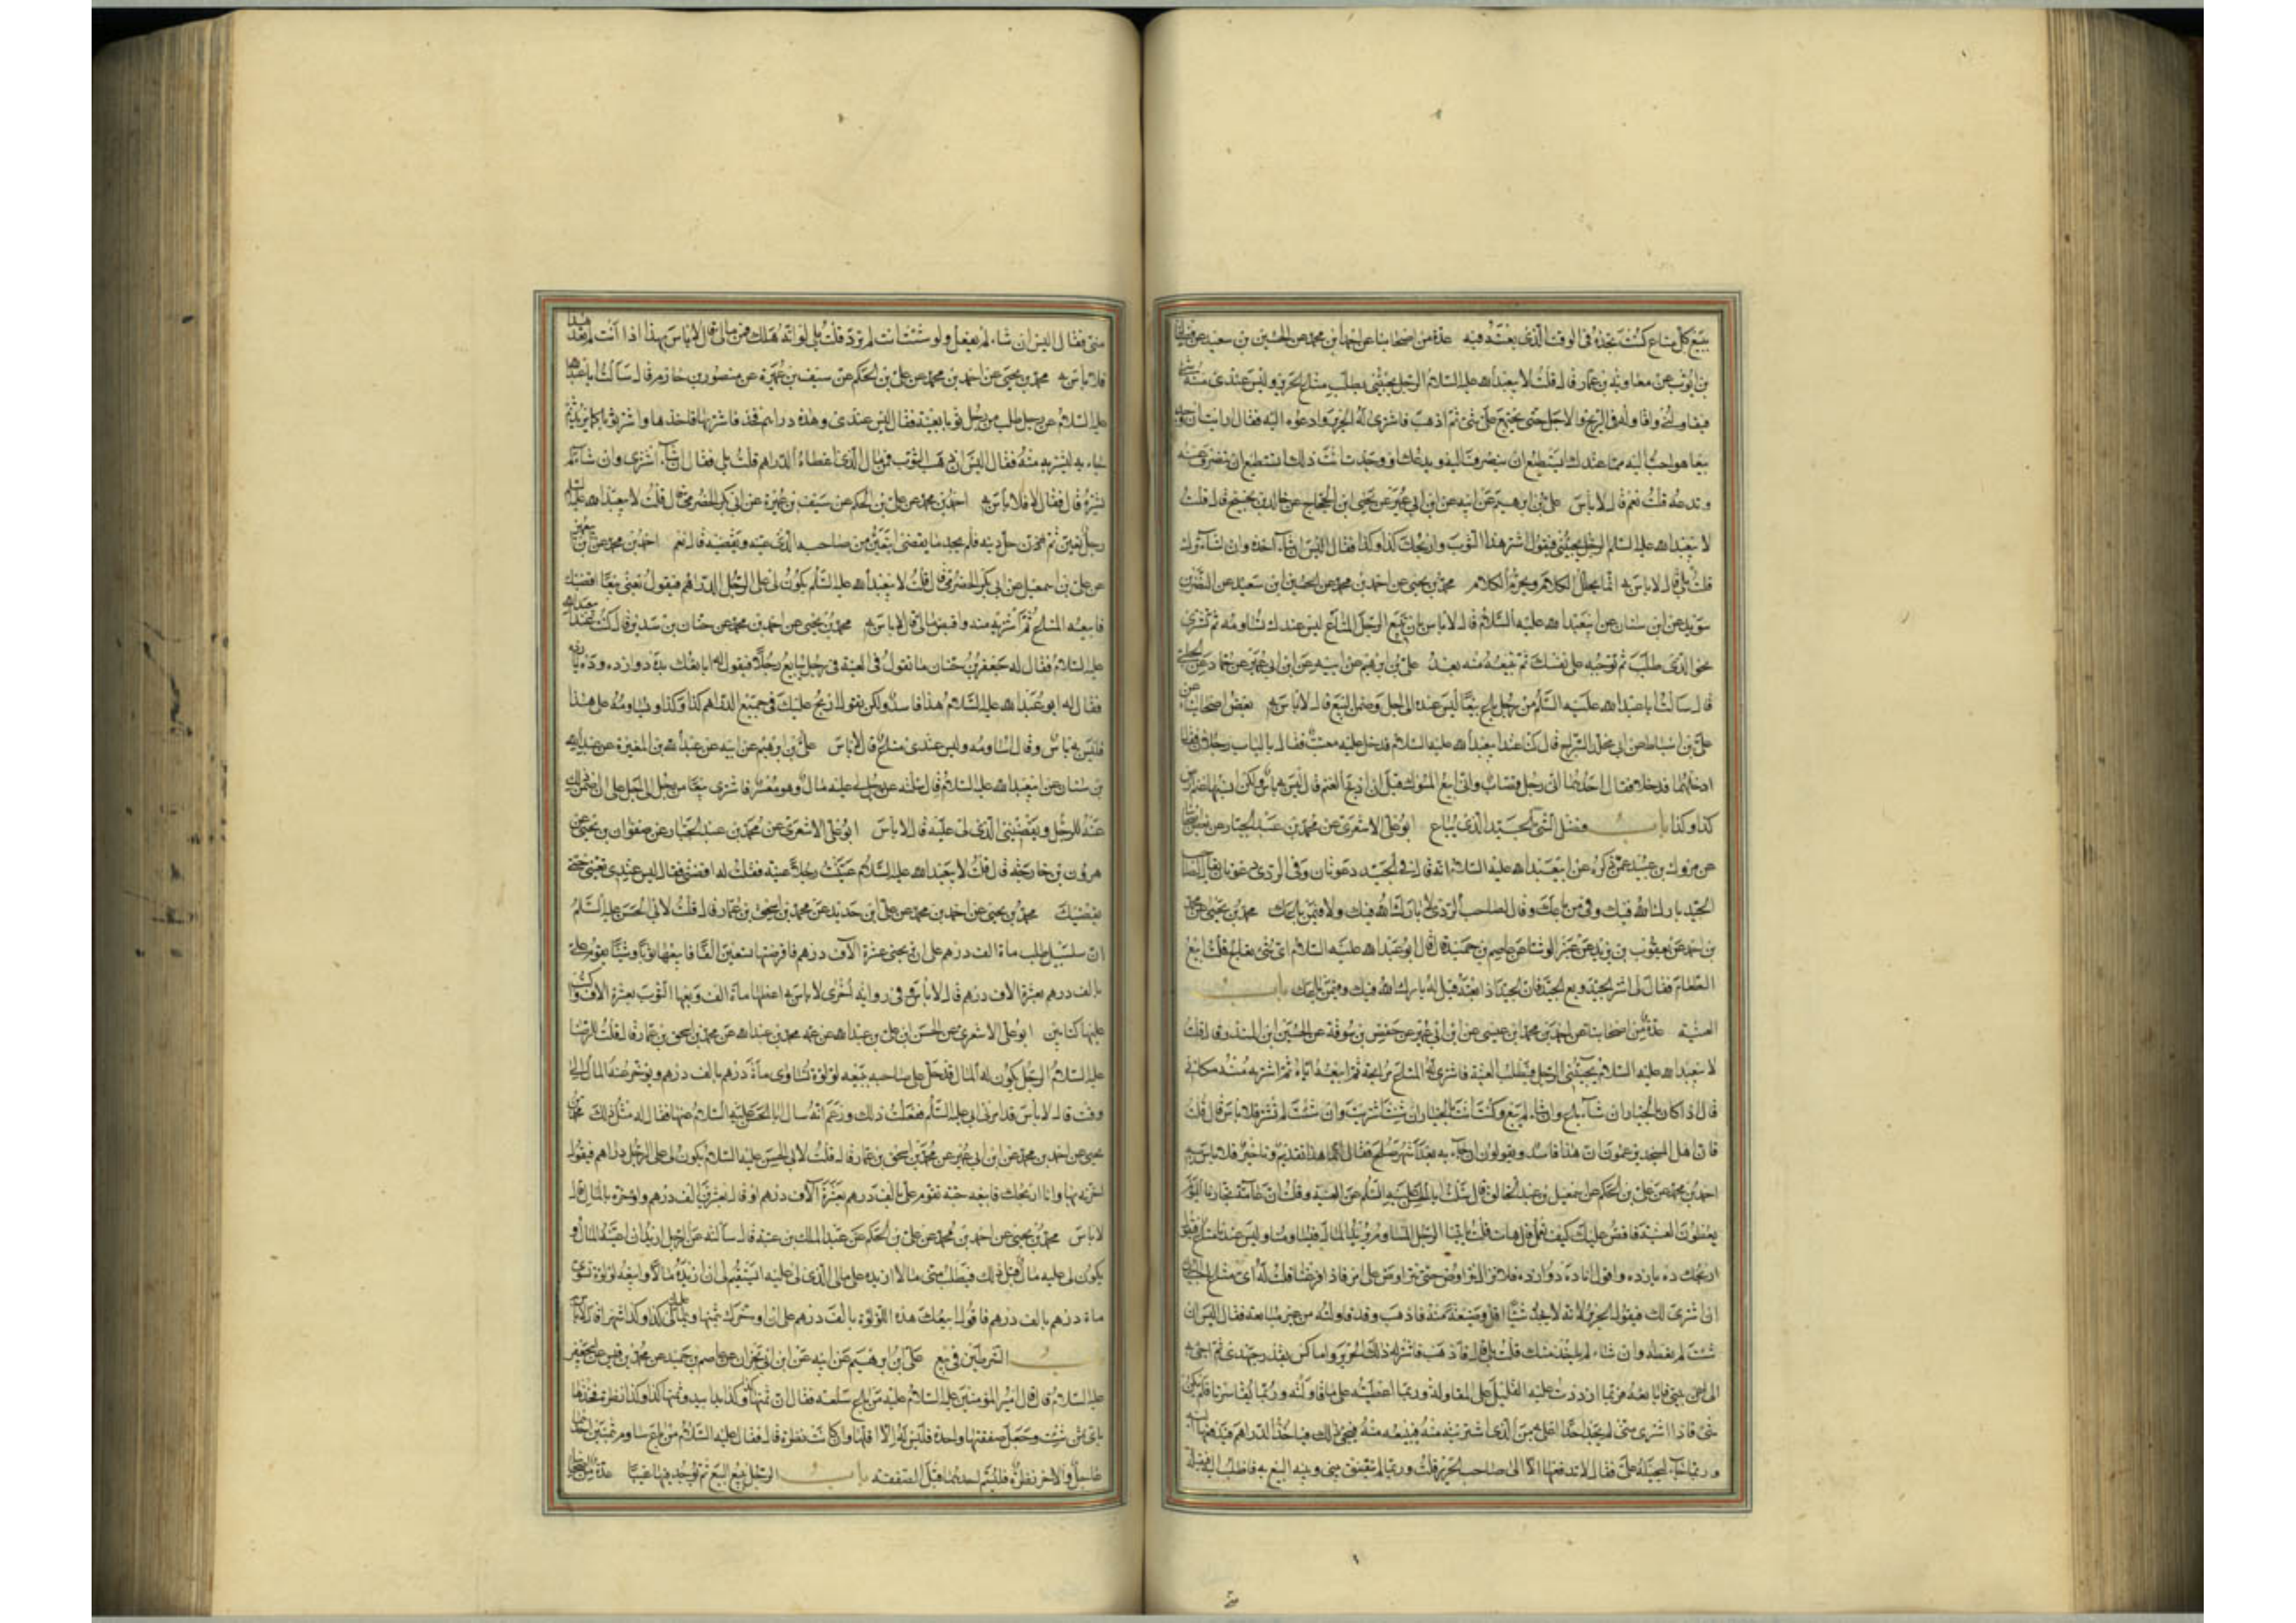 ببيع كل متاع كنت تجده في الوقت الذي بعته فيه عدة من اصحابنا عن احمد بن محمد عن الحسين بن سعيد عن فضالة
بن ايوب عن معاوية بن عمار قال قلت لابي عبد الله عليه السلام الرجل يجيئني يطلب بيع الحرير وليس عندي منه شئ
فيقاولني واقاوله في الربح والاجل حتى يجتمع على شئ ثم اذهب فاشتري له الحرير وادعوه اليه فقال ارايت ان وجد
بيعا هو احب اليه مما عندك ايستطيع ان ينصرف اليه ويدعك او وجدت انت ذلك اتستطيع ان تنصرف عنه
وتدعه قلت نعم قال لا باس علي بن ابرهيم عن ابيه عن ابن ابي عمير عن يحيى ابن الحجاج عن خالد بن نجيح قال قلت
لابي عبد الله عليه السلم الرجل يجيئني فيقول اشتر هذا الثوب واربحك كذا وكذا فقال اليس ان شاء اخذ وان شاء ترك
قلت بلى قال لا باس به انما يحلل الكلام ويحرم الكلام محمد بن يحيى عن احمد بن محمد عن الحسين ابن سعيد عن النضر بن
سويد عن ابن سنان عن ابي عبد الله عليه السلام قال لا باس بان تبيع الرجل المتاع ليس عندك تساومه ثم تشتري
نحو الذي طلب ثم توجبه على نفسك ثم تبيعه منه بعد علي بن ابرهيم عن ابيه عن ابن ابي عمير عن حماد عن الحلبي
قال سالت ابا عبد الله عليه السلم عن رجل باع بيعا ليس عنده الى اجل وضمن البيع قال لا باس به بعض اصحابنا عن
علي بن اسباط عن ابي مخلد السراج قال كنا عند ابي عبد الله عليه السلام فدخل عليه معتب فقال بالباب رجلان فقال
ادخلهما فدخلا فقال احدهما اني رجل قصاب واني ابيع المسوك قبل ان اذبح الغنم قال ليس به باس ولكن انسبها غنم ارض
كذا وكذا باب فضل الشئ الجيد الذي يباع ابو علي الاشعري عن محمد بن عبد الجبار عن بعض اصحابنا
عن مروك بن عبيد عمن ذكره عن ابي عبد الله عليه السلام انه قال في الجيد دعوتان وفي الردي دعوتان يقال لصاحب
الجيد بارك الله فيك وفي من باعك وقال لصاحب الردي لا بارك الله فيك ولا فيمن باعك محمد بن يحيى عن محمد
بن احمد عن يعقوب بن يزيد عن الوشا عن عاصم بن حميد قال قال ابو عبد الله عليه السلام اي شئ تعالج قلت ابيع
الطعام فقال لي اشتر الجيد وبع الجيد فان الجيد اذا بعته قيل له بارك الله فيك وفيمن باعك باب
العينة عدة من اصحابنا عن احمد بن محمد ابن عيسى عن ابن ابي عمير عن حفص بن سوقة عن الحسين ابن المنذر قال قلت
لابي عبد الله عليه السلام يجيئني الرجل فيطلب العينة فاشتري له المتاع مرابحة ثم ابيعه اياه ثم اشتريه منه مكاني
قال اذا كان بالخيار ان شاء باع وان شاء لم يبع وكنت انت بالخيار ان شئت اشتريت وان شئت لم تشتر فلا باس قال قلت
فان اهل المسجد يزعمون ان هذا فاسد ويقولون ان جاء به بعد اشهر صلح فقال انما هذا تقديم وتاخير فلا باس به
احمد بن محمد عن علي بن الحكم عن اسمعيل بن عبد الخالق قال سئلت ابا الحسن عليه السلم عن العينة وقلت ان عامة تجارنا اليوم
يعطون العينة فاقص عليك كيف نعمل قال هات قلت ياتينا الرجل المساوم يريد المال فيساومنا وليس عندنا متاع فيقول
اربحك ده يازده واقول انا ده دوازده فلا نزال نتراوض حتى نتراوض على امر فاذا فرغنا قلت له اي متاع احب اليك
ان نشتري لك فيقول الحرير لانه لا يجد شيئا اقل وضيعة منه فاذهب وقد قاولته من غير مبايعة فقال اليس ان
شئت لم تعطه وان شاء لم ياخذ منك قلت بلى قال فاذهب فاشتري له ذلك الحرير واماكس بقدر جهدي ثم اجئ به
الى بيتي فابايعه فربما ازددت عليه القليل على المقاولة وربما اعطيته على ما قاولته وربما تعاسرنا فلم يكن
شئ فاذا اشترى مني لم يجد احدا اغلى به من الذي اشتريته منه فيبيعه منه فيجئ ذلك فياخذ الدراهم فيدفعها اليه
وربما جاء ليحيله علي فقال لا تدفعها الا الى صاحب الحرير قلت وربما لم يتفق بيني وبينه البيع به فاطلب اليه فيقبله
مني فقال اليس ان شاء لم يفعل ولو شئت انت لم ترد قلت بلى لو انه هلك فمن مالي قال لا باس بهذا اذا انت لم تعد هذا
فلا باس به محمد بن يحيى عن احمد بن محمد عن علي بن الحكم عن سيف بن عميرة عن منصور بن حازم قال سالت ابا عبد الله
عليه السلام عن رجل طلب من رجل ثوبا بعينة فقال ليس عندي وهذه دراهم فخذ فاشتر بها فاخذها واشترى ثوبا كما يريد ثم
جاء به ليشتريه منه فقال اليس ان ذهب الثوب فمن مال الذي اعطاه الدراهم قلت بلى فقال ان شاء اشترى وان شاء لم
يشتره قال فقال لا فلا باس به احمد بن محمد عن علي بن الحكم عن سيف بن عميرة عن ابي بكر الحضرمي قال قلت لابي عبد الله عليه السلم
رجل تعين ثم حل دينه فلم يجد ما يقضي ايتعين من صاحبه الذي عينه ويقضيه قال نعم احمد بن محمد
عن علي بن اسمعيل عن ابي بكر الحضرمي قال قلت لابي عبد الله عليه السلم يكون لي على الرجل الدراهم فيقول بعني بيعا اقضيك
فابيعه المتاع ثم اشتريه منه واقبض مالي قال لا باس به محمد بن يحيى عن احمد بن محمد عن حنان بن سدير قال كنت عند ابي عبد الله
عليه السلام فقال له جعفر بن حنان ما تقول في العينة في رجل يبايع رجلا فيقول له ابايعك بده دوازده وده يازده
فقال له ابو عبد الله عليه السلام هذا فاسد ولكن يقول اربح عليك في جميع الدراهم كذا وكذا ويساومه على هذا
فليس به باس وقال اساومه وليس عندي متاع قال لا باس علي بن ابرهيم عن ابيه عن عبد الله بن المغيرة عن عبد الله
بن سنان عن ابي عبد الله عليه السلام قال سئلته عن رجل لي عليه مال وهو معسر فاشترى بيعا من رجل الى اجل على ان اضمن ذلك
عنه للرجل ويقضيني الذي لي عليه قال لا باس ابو علي الاشعري عن محمد بن عبد الجبار عن صفوان بن يحيى عن
هرون بن خارجة قال قلت لابي عبد الله عليه السلام عينت رجلا عينة فقلت له اقضني فقال ليس عندي تعينني حتى
نقضيك محمد بن يحيى عن احمد بن محمد عن علي ابن حديد عن محمد بن اسحق بن عمار قال قلت لابي الحسن عليه السلم
ان سلسبيل طلب ماة الف درهم على ان تربحني عشرة الآف درهم فاقرضتها تسعين الفا فابيعها ثوبا وشيئا يقوم علي
بالف درهم بعشرة الاف درهم قال لا باس وفي رواية اخرى لا باس به اعطها ماة الف وبعها الثوب بعشرة الاف واكتب
عليها كتابين ابو علي الاشعري عن الحسن ابن علي بن عبد الله عن عمه محمد بن عبد الله عن محمد بن اسحق بن عمار قال قلت للرضا
عليه السلام الرجل يكون له المال قد حل على صاحبه يبيعه لؤلؤة تساوي ماة درهم بالف درهم ويؤخر عنه المال الى
وقت قال لا باس قد امرني ابي عليه السلم ففعلت ذلك وزعم انه سال ابا الحسن عليه السلام عنها فقال له مثل ذلك محمد بن
يحيى عن احمد بن محمد عن ابن ابي عمير عن محمد بن اسحق بن عمار قال قلت لابي الحسن عليه السلام يكون لي على الرجل دراهم فيقول
اخرني بها وانا اربحك فابيعه جبة تقوم علي بالف درهم بعشرة الآف درهم او قال بعشرين الف درهم واؤخره بالمال قال
لا باس محمد بن يحيى عن احمد بن محمد عن علي بن الحكم عن عبد الملك بن عتبة قال سالته عن الرجل اريد ان اعينه المال او
يكون لي عليه مال قبل ذلك فيطلب مني مالا ازيده على مالي الذي لي عليه ايستقيم لي ان ازيده مالا وابيعه لؤلؤة تسوى
ماة درهم بالف درهم فاقول ابيعك هذه اللؤلؤة بالف درهم على ان اؤخرك بثمنها وبمالي عليك كذا وكذا شهرا قال لا باس
باب الشرطين في بيع علي بن ابرهيم عن ابيه عن ابن ابي نجران عن عاصم بن حميد عن محمد بن قيس عن ابي جعفر
عليه السلام قال قال امير المؤمنين عليه السلام من باع سلعة فقال ان ثمنها كذا وكذا يدا بيد وثمنها كذا وكذا نظرة فخذها
باي ثمن شئت وجعل صفقتها واحدة فليس له الا اقلهما وان كانت نظرة قال فقال عليه السلام من باع ساوم بثمنين احدهما
عاجل والاخر نظرة فليسم احدهما قبل الصفقة باب الرجل يبيع البيع ثم يوجد فيها عيبا عدة من اصحابنا